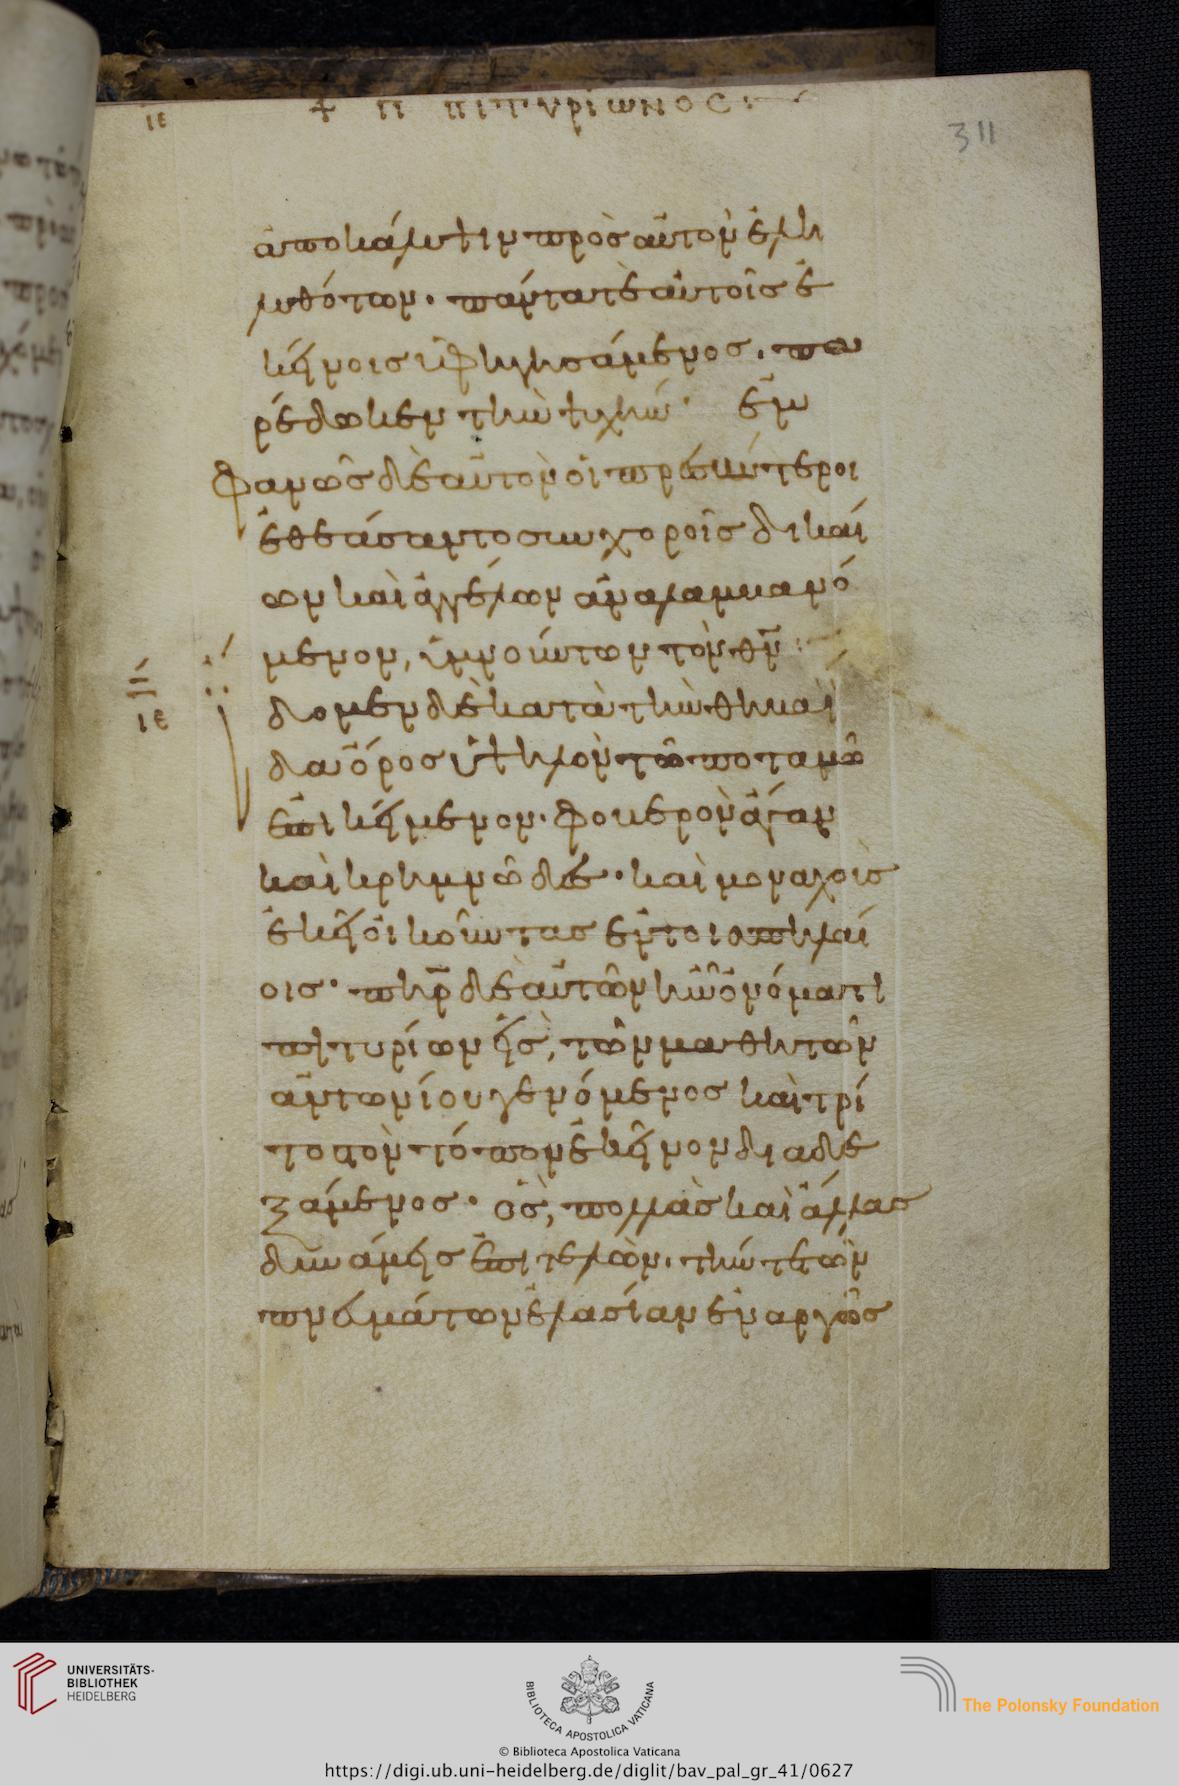 ιε + π πιτυριωνος :
311
ἀποκάλυψιν πρὸς αὐτὸν ἐλη
λυθότων. πάντα τὲ αὐτοῖς ἐ
κείνοις ὑφηγησάμενος. πα
ρέδωκεν τὴν ψυχήν. ἐμ
φανῶς δὲ αὐτὸν οἱ πρεσβύτεροι
ἐθεάσαντο σὺν χοροῖς δικαί
ων καὶ ἀγγέλων ἀναλαμβανό
μενον, ὑμνούντων τὸν θν :
ιε
δομεν δὲ κατὰ τὴν θηβαΐ
δα ὄρος ὑψηλὸν τῶ ποταμῶ
ἐπικείμενον. φοβερὸν ἄγαν
καὶ κρημνῶδες. καὶ μοναχοὺς
ἐκεῖ οἰκοῦντας ἐν τοῖ σπηλαί
οις. πηρ δὲ αὐτῶν ἦν ὀνόματι
πιτυρίων εἷς, τῶν μαθητῶν
ἀντωνίου γενόμενος καὶ τρί
τος τὸν τόπον ἐκεῖνον διαδε
ξάμενος. ὃς, πολλὰς καὶ ἄλλας
δυνάμεις ἐπιτελῶν. τήν τε τῶν
πνευμάτων ἐλασίαν ἐναργῶς
UNIVERSITÄTS-
BIBLIOTHEK
HEIDELBERG
BIBLIOTECA APOSTOLICA VATICANA
The Polonsky Foundation
© Biblioteca Apostolica Vaticana
https://digi.ub.uni-heidelberg.de/diglit/bav_pal_gr_41/0627